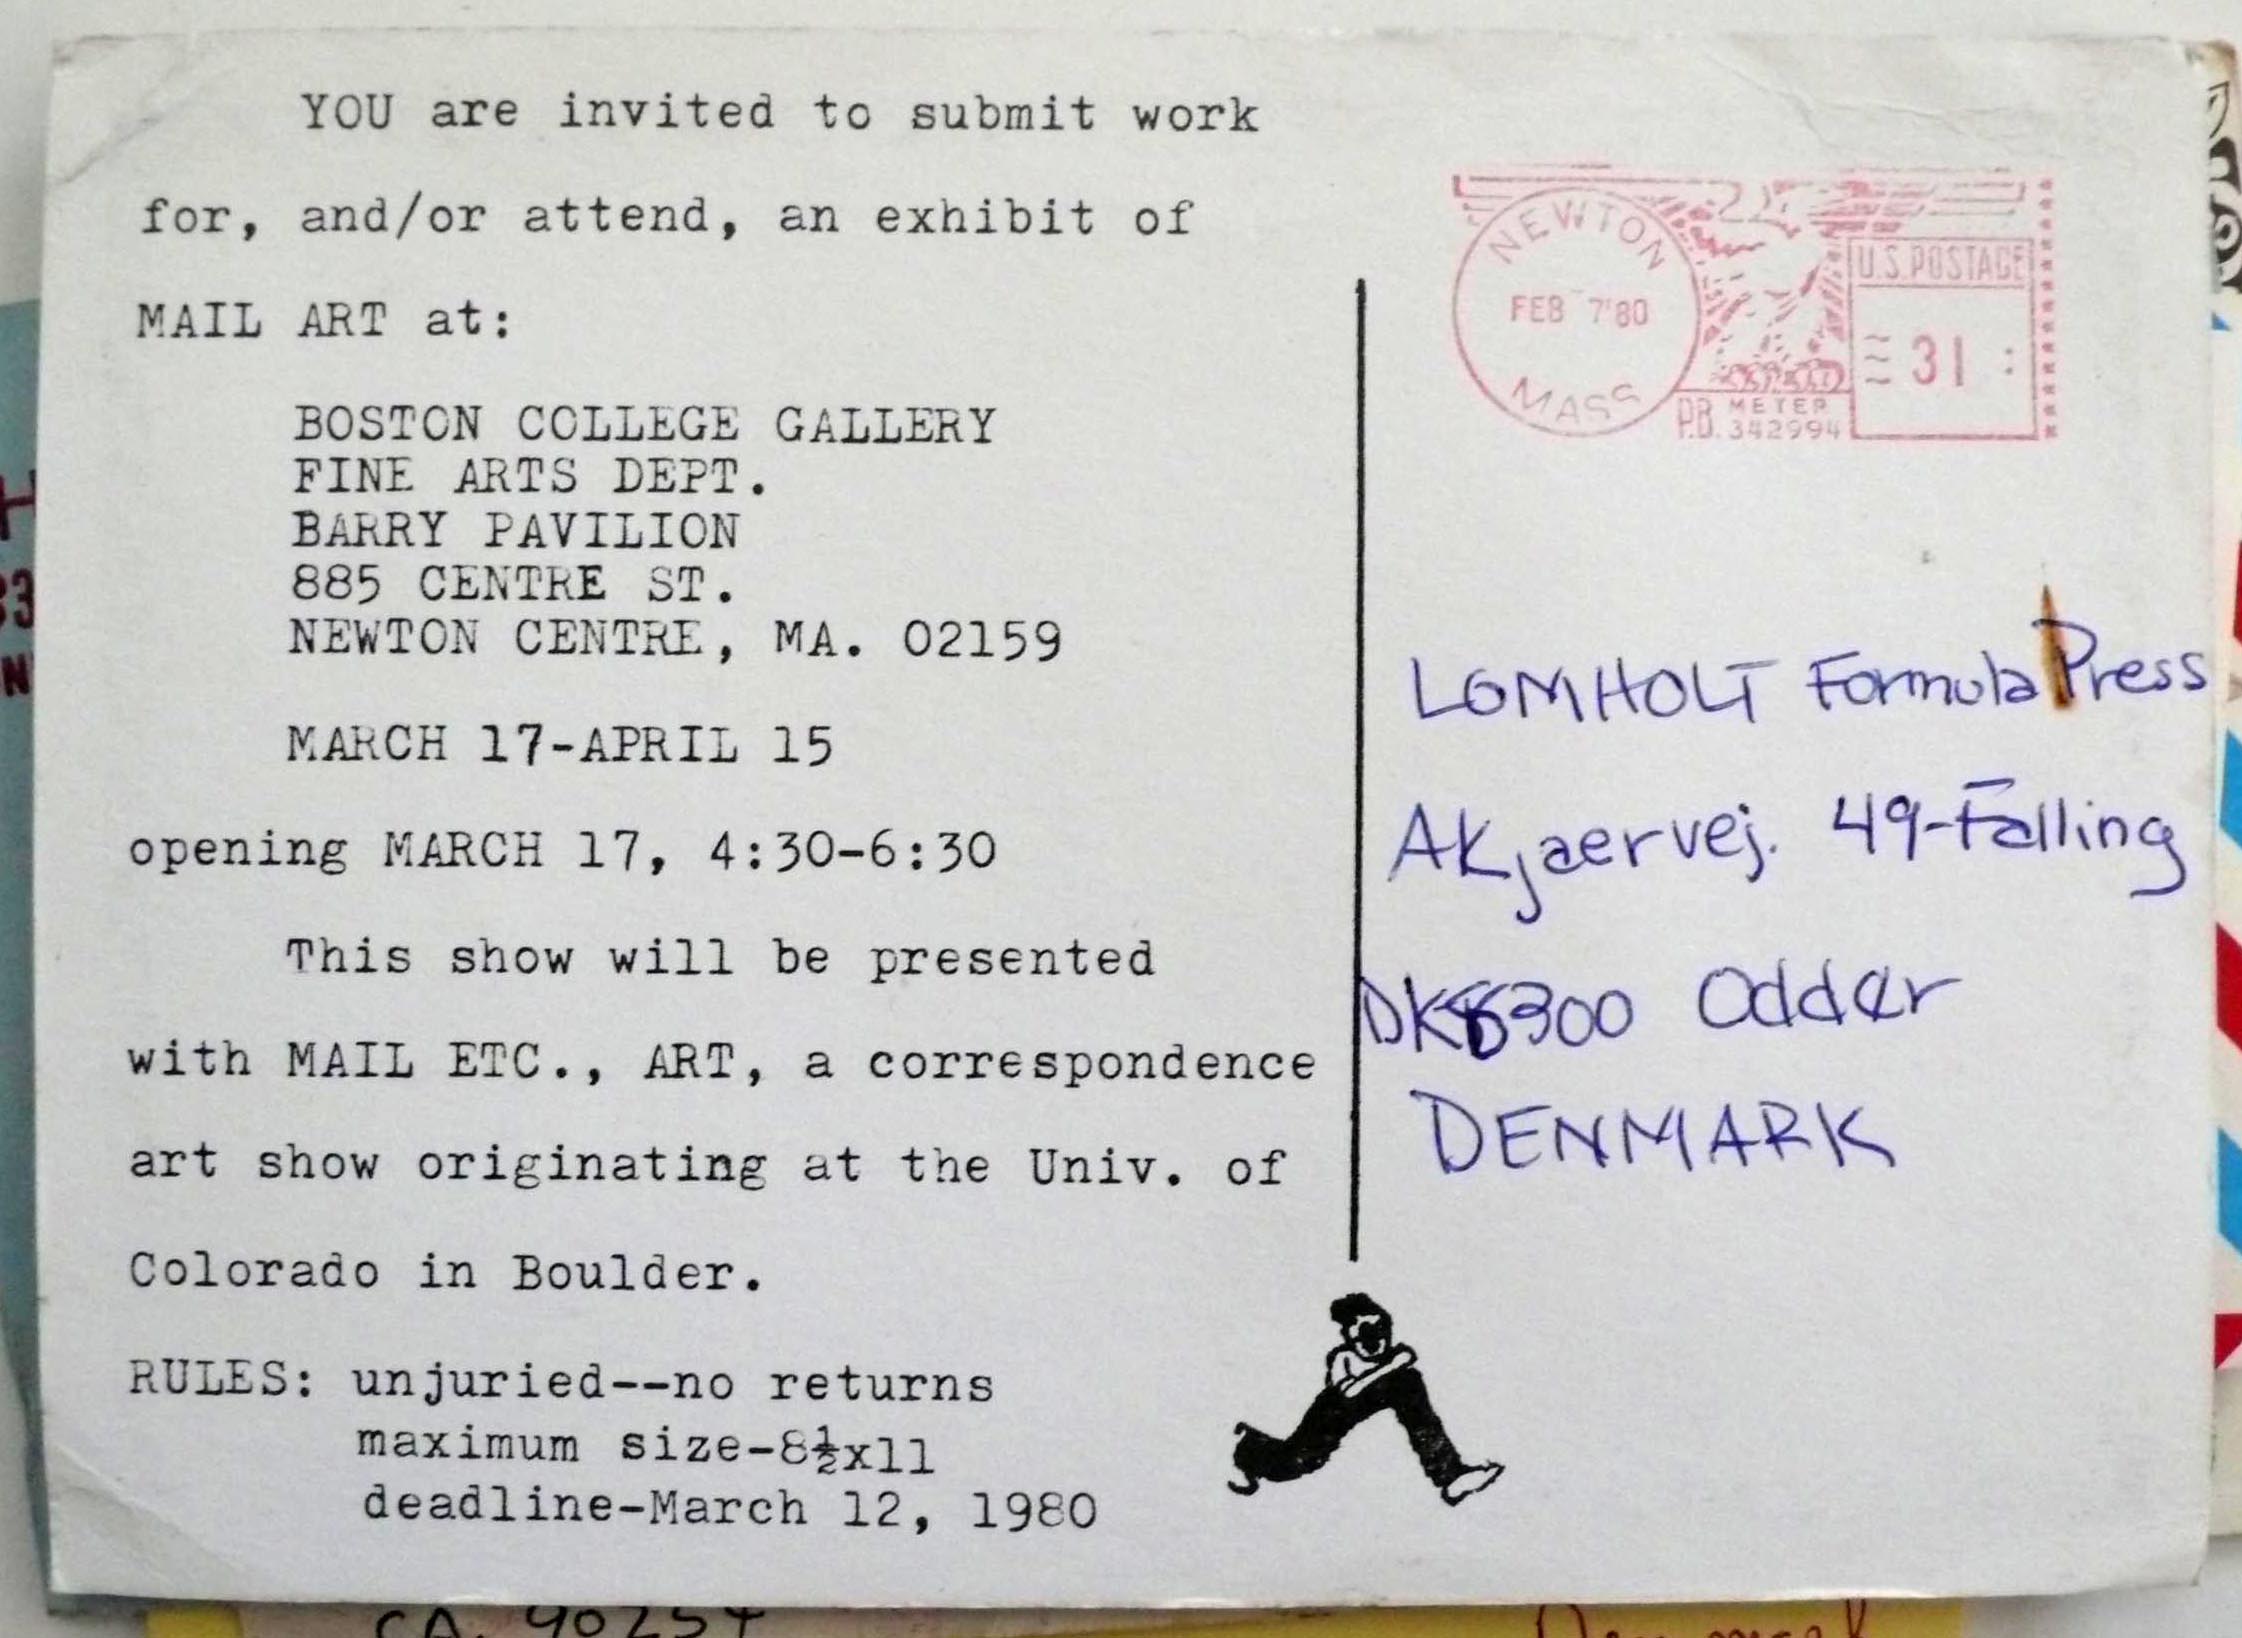 YOU are invited to submit work
for, and/or attend, an exhibit of
MAIL ART at:
BOSTON COLLEGE GALLERY
FINE ARTS DEPT.
BARRY PAVILION
885 CENTRE ST.
NEWTON CENTRE, MA. 02159
MARCH 17-APRIL 15
opening MARCH 17, 4:30-6:30
This show will be presented
with MAIL ETC., ART, a correspondence
art show originating at the Univ. of
Colorado in Boulder.
RULES: unjuried--no returns
maximum size-8½x11
deadline-March 12, 1980
NEWTON
FEB 7'80
MASS
U.S. POSTAGE
31
P.B. METER
342994
LOMHOLT Formula Press
Akjaervej. 49-Falling
DK8300 Odder
DENMARK
CA. 90254